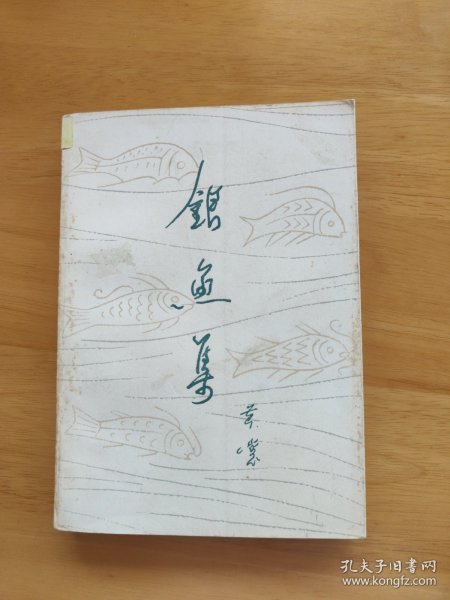 銀鱼集
黄裳
孔夫子旧书网
www.kongfz.com